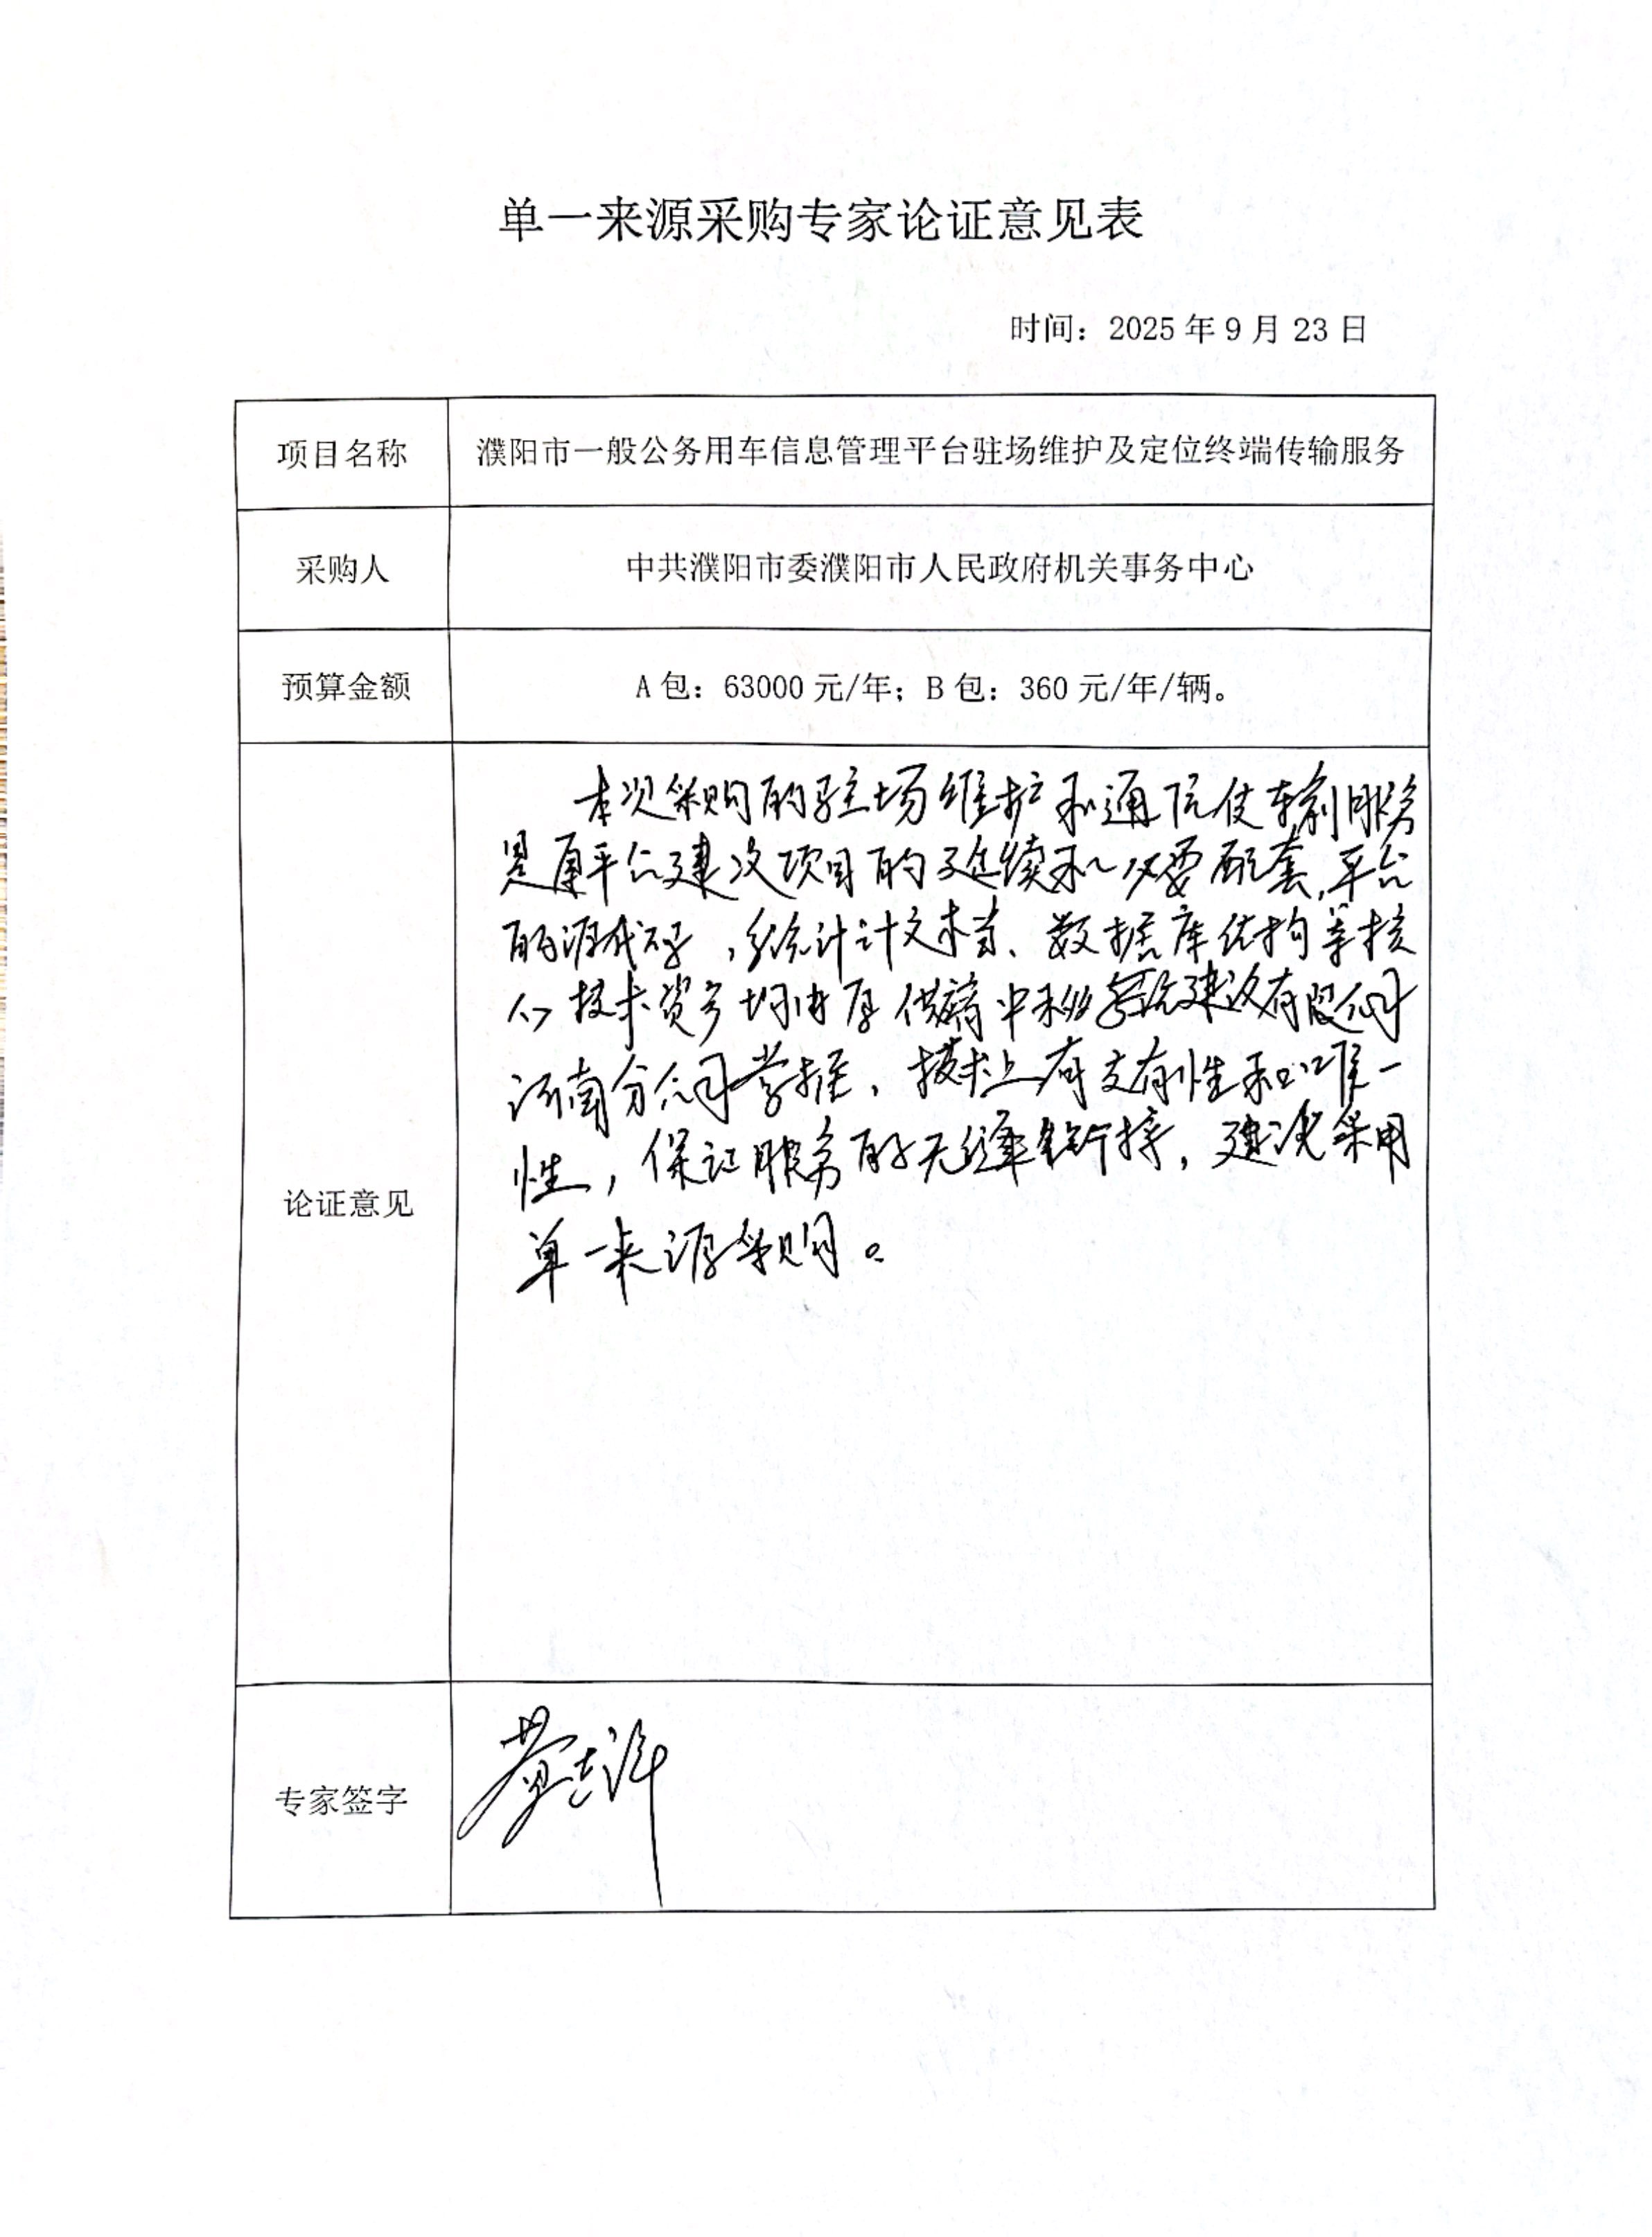 单一来源采购专家论证意见表
时间：2025年9月23日
项目名称
濮阳市一般公务用车信息管理平台驻场维护及定位终端传输服务
采购人
中共濮阳市委濮阳市人民政府机关事务中心
预算金额
A包：63000元/年；B包：360元/年/辆。
论证意见
本次采购的驻场维护和通信传输服务
是原平台建设项目的延续和必要配套，平台
的源代码，系统计计文档、数据库结构等核
心技术资产均由原供应商中移建设有限公司
河南分公司掌握，技术上有专有性和唯一
性，保证服务的无缝衔接，建议采用
单一来源采购。
专家签字